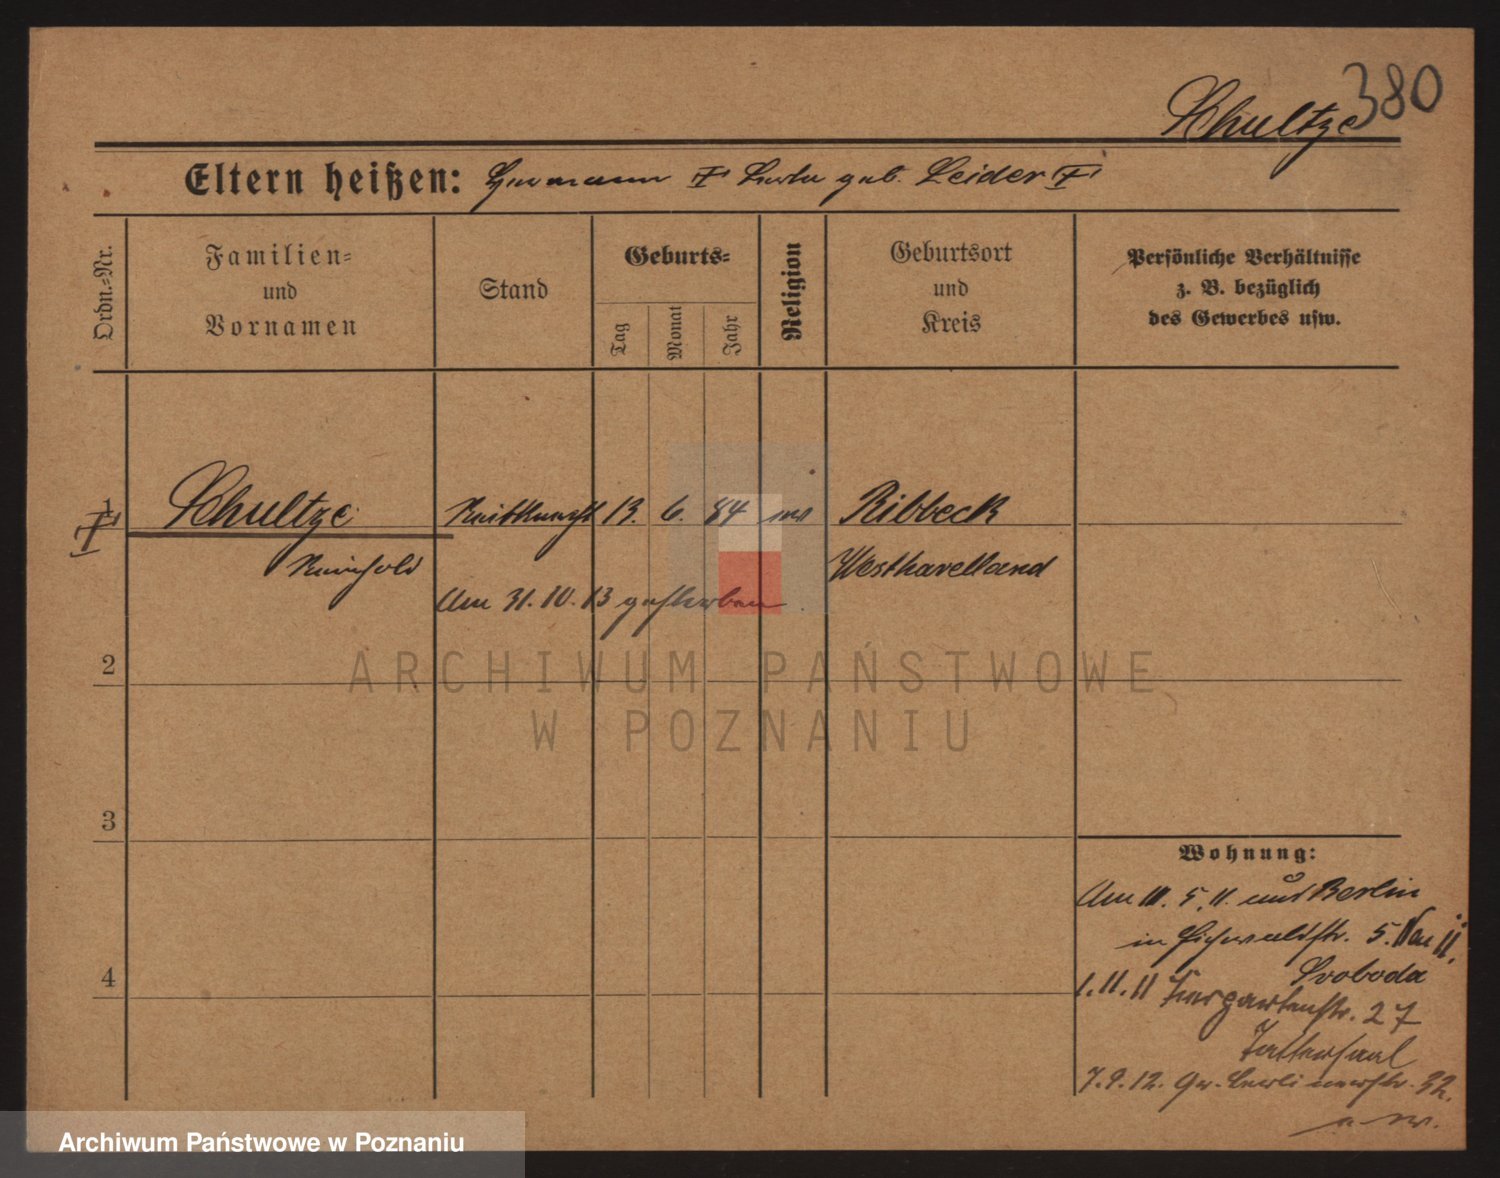 380
Schultze
Eltern heißen: Hermann † Berta geb. Leider †
Ordn.-Nr.
Familien-
und
Vornamen
Stand
Geburts-
Tag
Monat
Jahr
Religion
Geburtsort
und
Kreis
Persönliche Verhältnisse
z. B. bezüglich
des Gewerbes usw.
1
† Schultze Reitknecht 13. 6. 84 ev Ribbeck
Reinhold Westhavelland
Am 31. 10. 13 gestorben
2
ARCHIWUM PAŃSTWOWE
W POZNANIU
3
4
Wohnung:
Am 5. 11. aus Berlin
in Eichwaldstr. 5.
Svoboda
1. 11. 11 Tiergartenstr. 27
Tattersaal
7. 9. 12. Gr. Berlinerstr. 32.
Archiwum Państwowe w Poznaniu